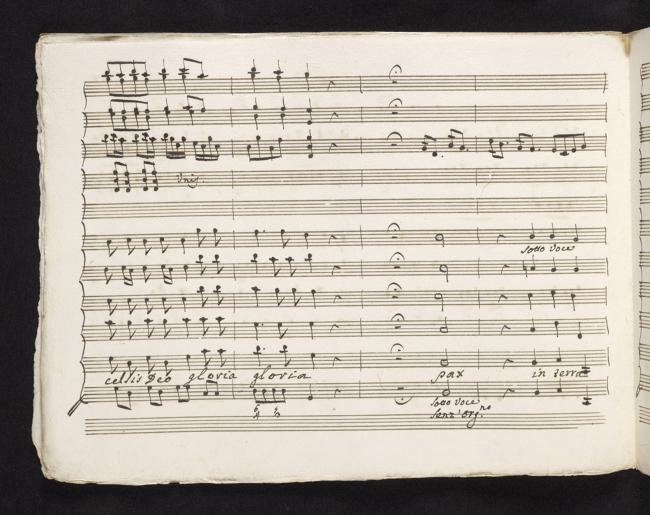 Unis.
sotto voce
celsis Deo gloria gloria pax in terra
6 5
4 3
sotto voce
senz' Org.no